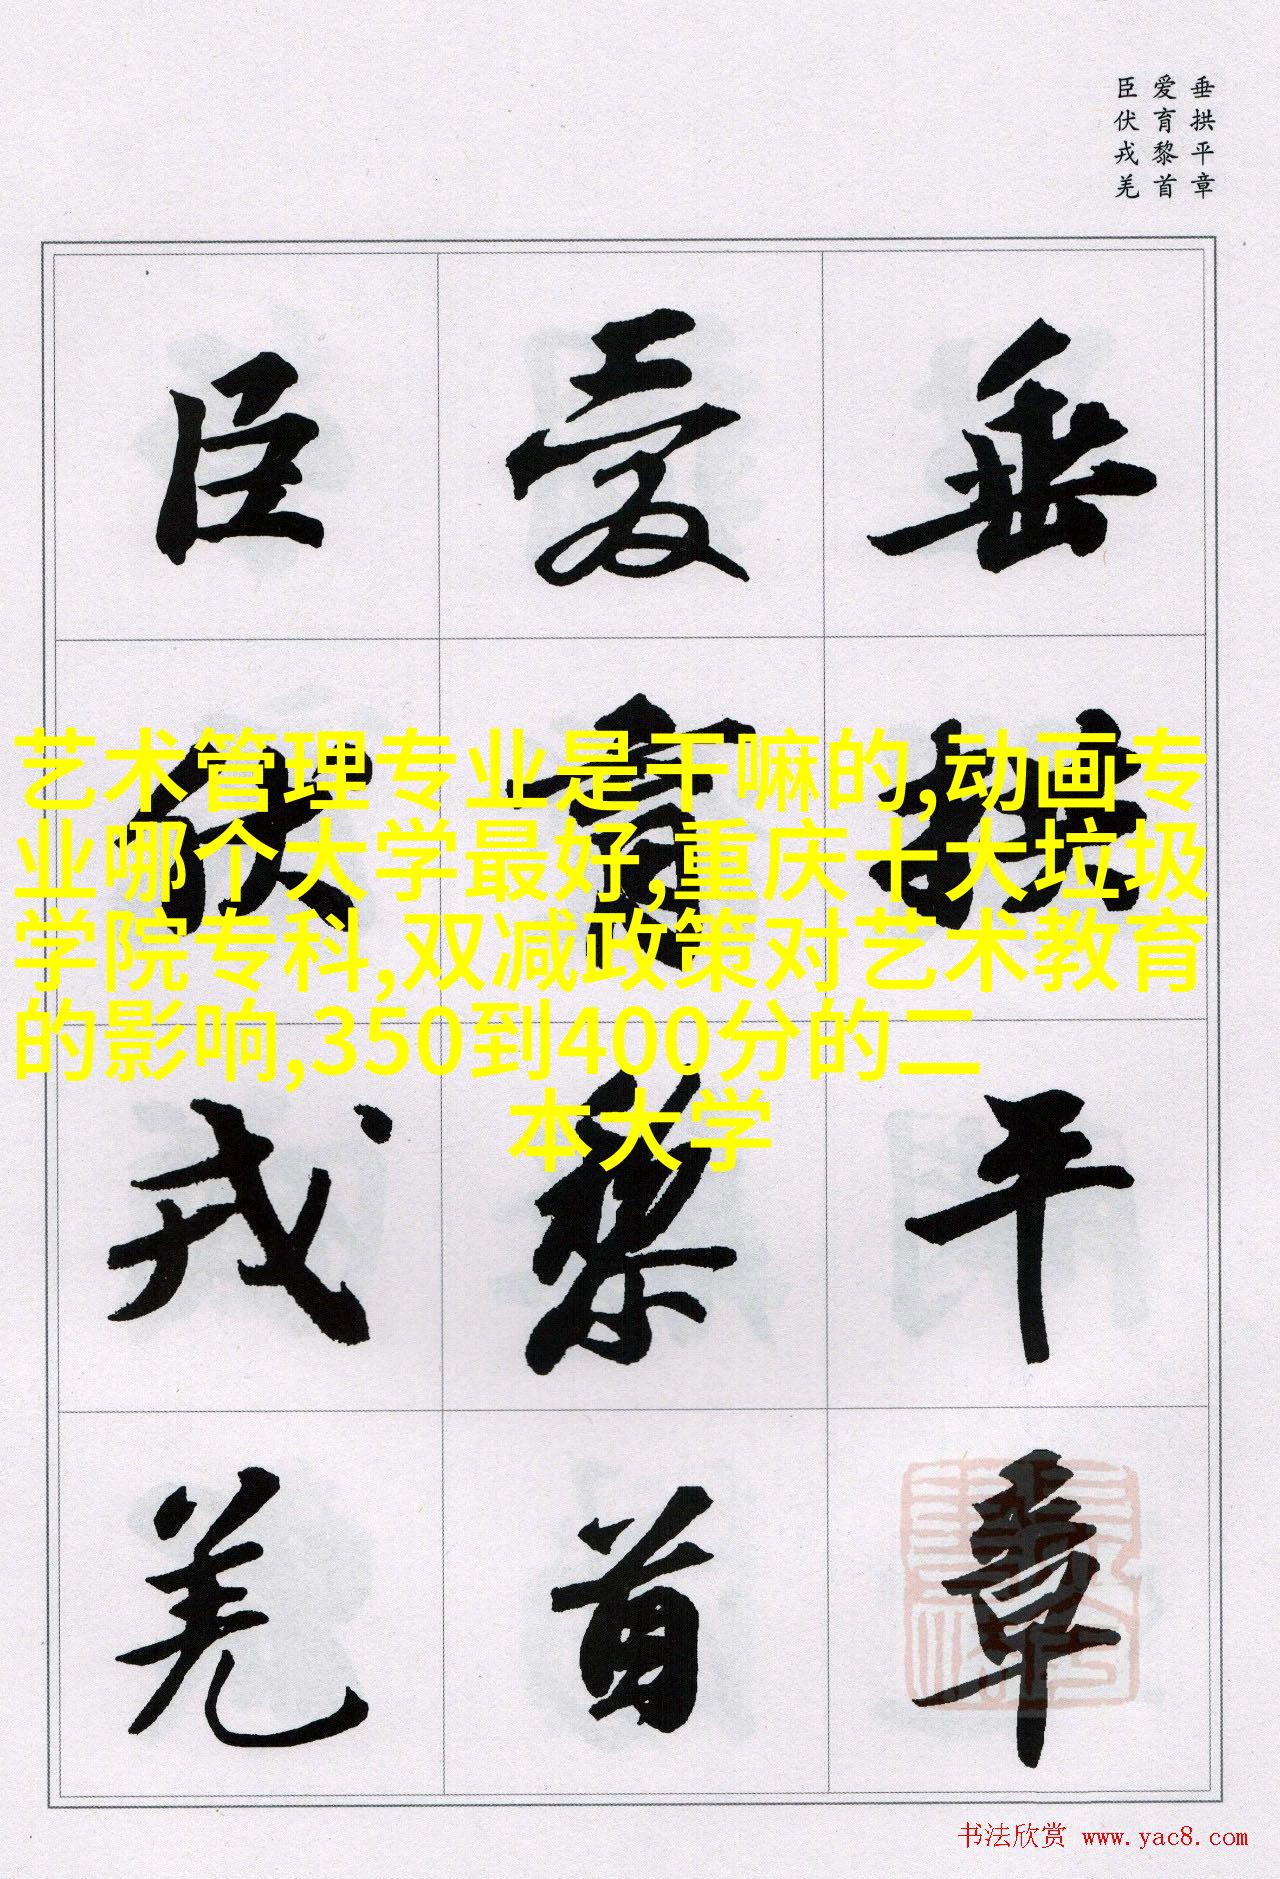 垂拱平章
爱育黎首
臣伏戎羌
垂拱平章
爱育黎首
臣伏戎羌
艺术管理专业是干嘛的,动画专
业哪个大学最好,重庆十大垃圾
学院专科,双减政策对艺术教育
的影响,350到400分的二
本大学
书法欣赏 www.yac8.com